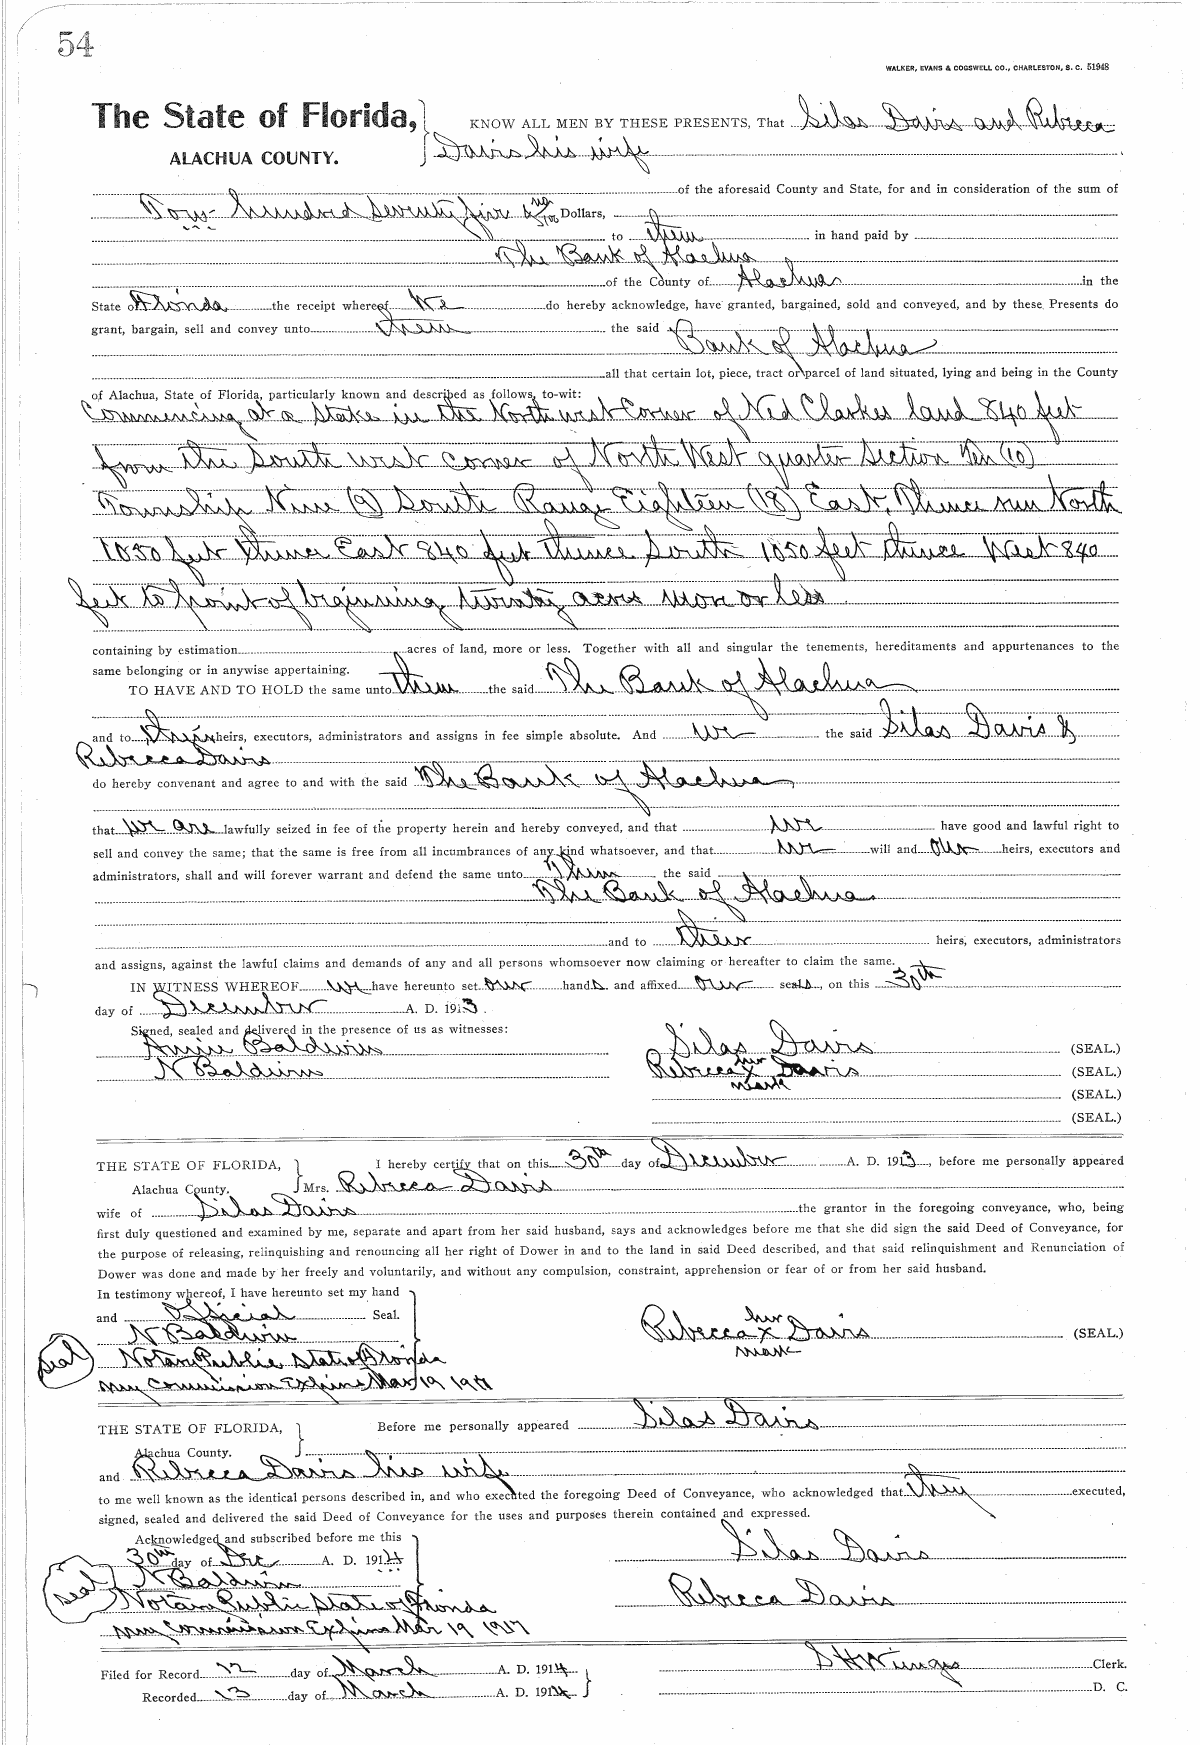 54
WALKER, EVANS & COGSWELL CO., CHARLESTON, S. C. 51948
The State of Florida, KNOW ALL MEN BY THESE PRESENTS, That Silas Davis and Rebecca
ALACHUA COUNTY. Davis his wife
of the aforesaid County and State, for and in consideration of the sum of
hundred seventy five & no/100 Dollars,
to them in hand paid by
The Bank of Alachua
of the County of Alachua in the
State of Florida the receipt whereof We do hereby acknowledge, have granted, bargained, sold and conveyed, and by these Presents do
grant, bargain, sell and convey unto them the said
Bank of Alachua
all that certain lot, piece, tract or parcel of land situated, lying and being in the County
of Alachua, State of Florida, particularly known and described as follows, to-wit:
Commencing at a Stake in the North west Corner of Ned Clarkes land 840 feet
from the South west corner of North West quarter Section Ten (10)
Township Nine (9) South Range Eighteen (18) East, Thence run North
1050 feet thence East 840 feet thence South 1050 feet thence West 840
feet to point of beginning twenty acres more or less
containing by estimation acres of land, more or less. Together with all and singular the tenements, hereditaments and appurtenances to the
same belonging or in anywise appertaining.
TO HAVE AND TO HOLD the same unto them the said The Bank of Alachua
and to their heirs, executors, administrators and assigns in fee simple absolute. And we the said Silas Davis &
Rebecca Davis
do hereby convenant and agree to and with the said The Bank of Alachua,
that we are lawfully seized in fee of the property herein and hereby conveyed, and that we have good and lawful right to
sell and convey the same; that the same is free from all incumbrances of any kind whatsoever, and that we will and our heirs, executors and
administrators, shall and will forever warrant and defend the same unto Them the said
The Bank of Alachua.
and to their heirs, executors, administrators
and assigns, against the lawful claims and demands of any and all persons whomsoever now claiming or hereafter to claim the same.
IN WITNESS WHEREOF we have hereunto set our hands and affixed our seals, on this 30th
day of December A. D. 1913.
Signed, sealed and delivered in the presence of us as witnesses:
Annie Baldwin Silas Davis (SEAL.)
her
N Baldwin Rebecca x Davis (SEAL.)
mark (SEAL.)
(SEAL.)
THE STATE OF FLORIDA, I hereby certify that on this 30th day of December A. D. 1913, before me personally appeared
Alachua County. Mrs. Rebecca Davis
wife of Silas Davis the grantor in the foregoing conveyance, who, being
first duly questioned and examined by me, separate and apart from her said husband, says and acknowledges before me that she did sign the said Deed of Conveyance, for
the purpose of releasing, relinquishing and renouncing all her right of Dower in and to the land in said Deed described, and that said relinquishment and Renunciation of
Dower was done and made by her freely and voluntarily, and without any compulsion, constraint, apprehension or fear of or from her said husband.
In testimony whereof, I have hereunto set my hand
and Official Seal.
her
N Baldwin Rebecca x Davis (SEAL.)
mark
Seal Notary Public State of Florida
My Commission Expires Mar 19
THE STATE OF FLORIDA, Before me personally appeared Silas Davis
Alachua County.
and Rebecca Davis his wife
to me well known as the identical persons described in, and who executed the foregoing Deed of Conveyance, who acknowledged that they executed,
signed, sealed and delivered the said Deed of Conveyance for the uses and purposes therein contained and expressed.
Acknowledged and subscribed before me this
30th day of Dec A. D. 1914 Silas Davis
Seal N Baldwin
Notary Public State of Florida Rebecca Davis
My Commission Expires Mar 19 1917
Filed for Record 12 day of March A. D. 1914 S H Wienges Clerk.
Recorded 13 day of March A. D. 1914 D. C.